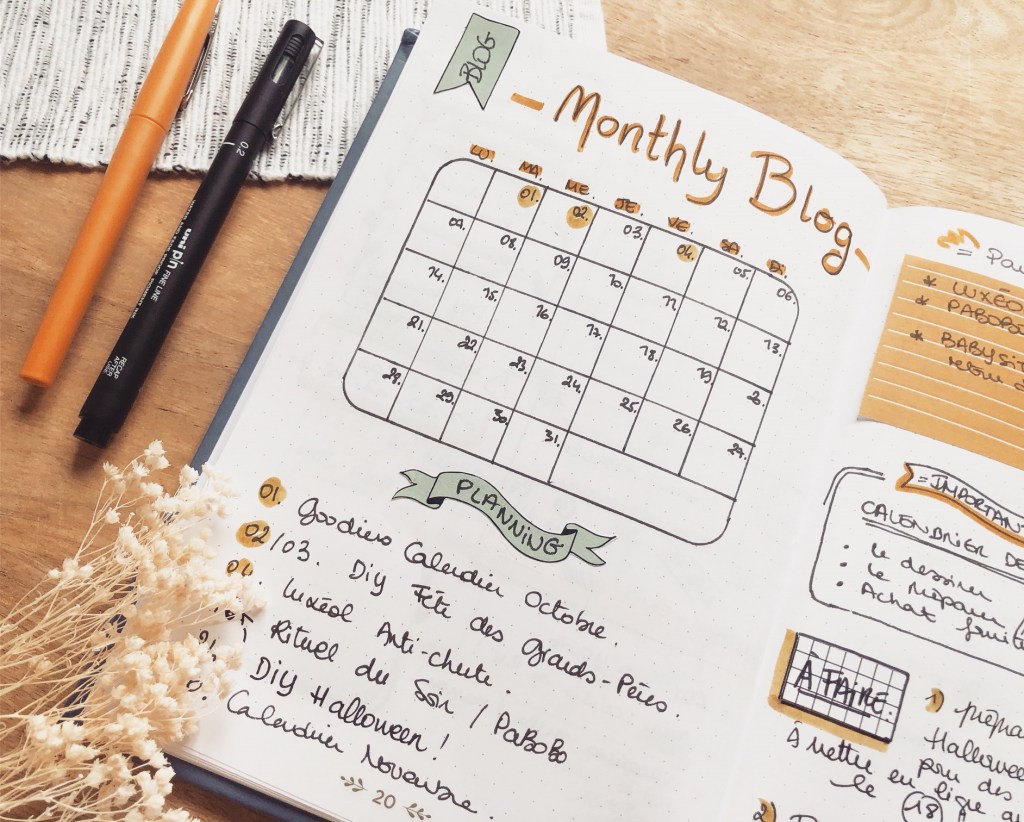 BLOG
Monthly Blog
LU. MA. ME. JE. VE. SA. DI.
01. 02. 03. 04. 05. 06.
07. 08. 09. 10. 11. 12. 13.
14. 15. 16. 17. 18. 19. 20.
21. 22. 23. 24. 25. 26. 27.
28. 29. 30. 31.
PLANNING
01. Goodies Calendier Octobre.
02/03. Diy Fête des Grands-Pères.
04. Luxéol Anti-chute.
Rituel du Soir / PaBoBo
Diy Halloween!
Calendrier Novembre.
20
LUXÉO
* PABOBO
* BABYSIT
=IMPORTAN
CALENDRIER DE
• Le dessiner
• Le préparer
• Achat
À FAIRE.
À mettre en ligne
le (18)
1) prépa
Hallowe
pour des
2)
0.2
uni pin FINE LINE
RECAP
AFTER
USE